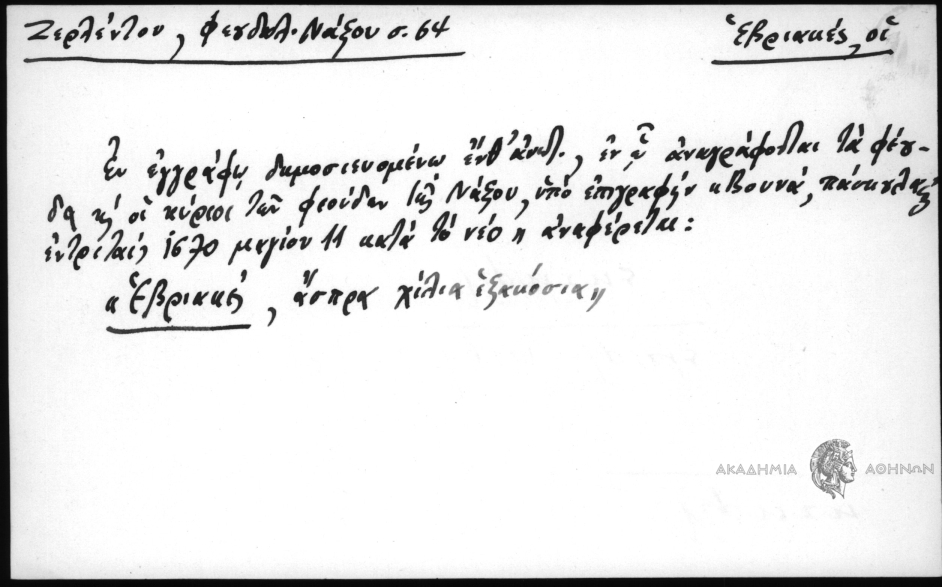 Ζερλέντου, Φεγδαλ. Νάξου σ. 64
Ἑβριακές, οἱ
Ἐν ἐγγράφῳ δημοσιευομένῳ ἔνθ' ἀνωτ., ἐν ᾧ ἀναγράφονται τὰ φέγ-
δα κ' οἱ κύριοι τῶν φεούδων τῆς Νάξου, ὑπὸ ἐπιγραφὴν «Βουνά,
ἐντρίταις 1670 μαγίου 11 κατὰ τὸ νέο» ἀναφέρεται:
«Ἑβριακές, ἄσπρα χίλια ἑξακόσια»
ΑΚΑΔΗΜΙΑ ΑΘΗΝΩΝ